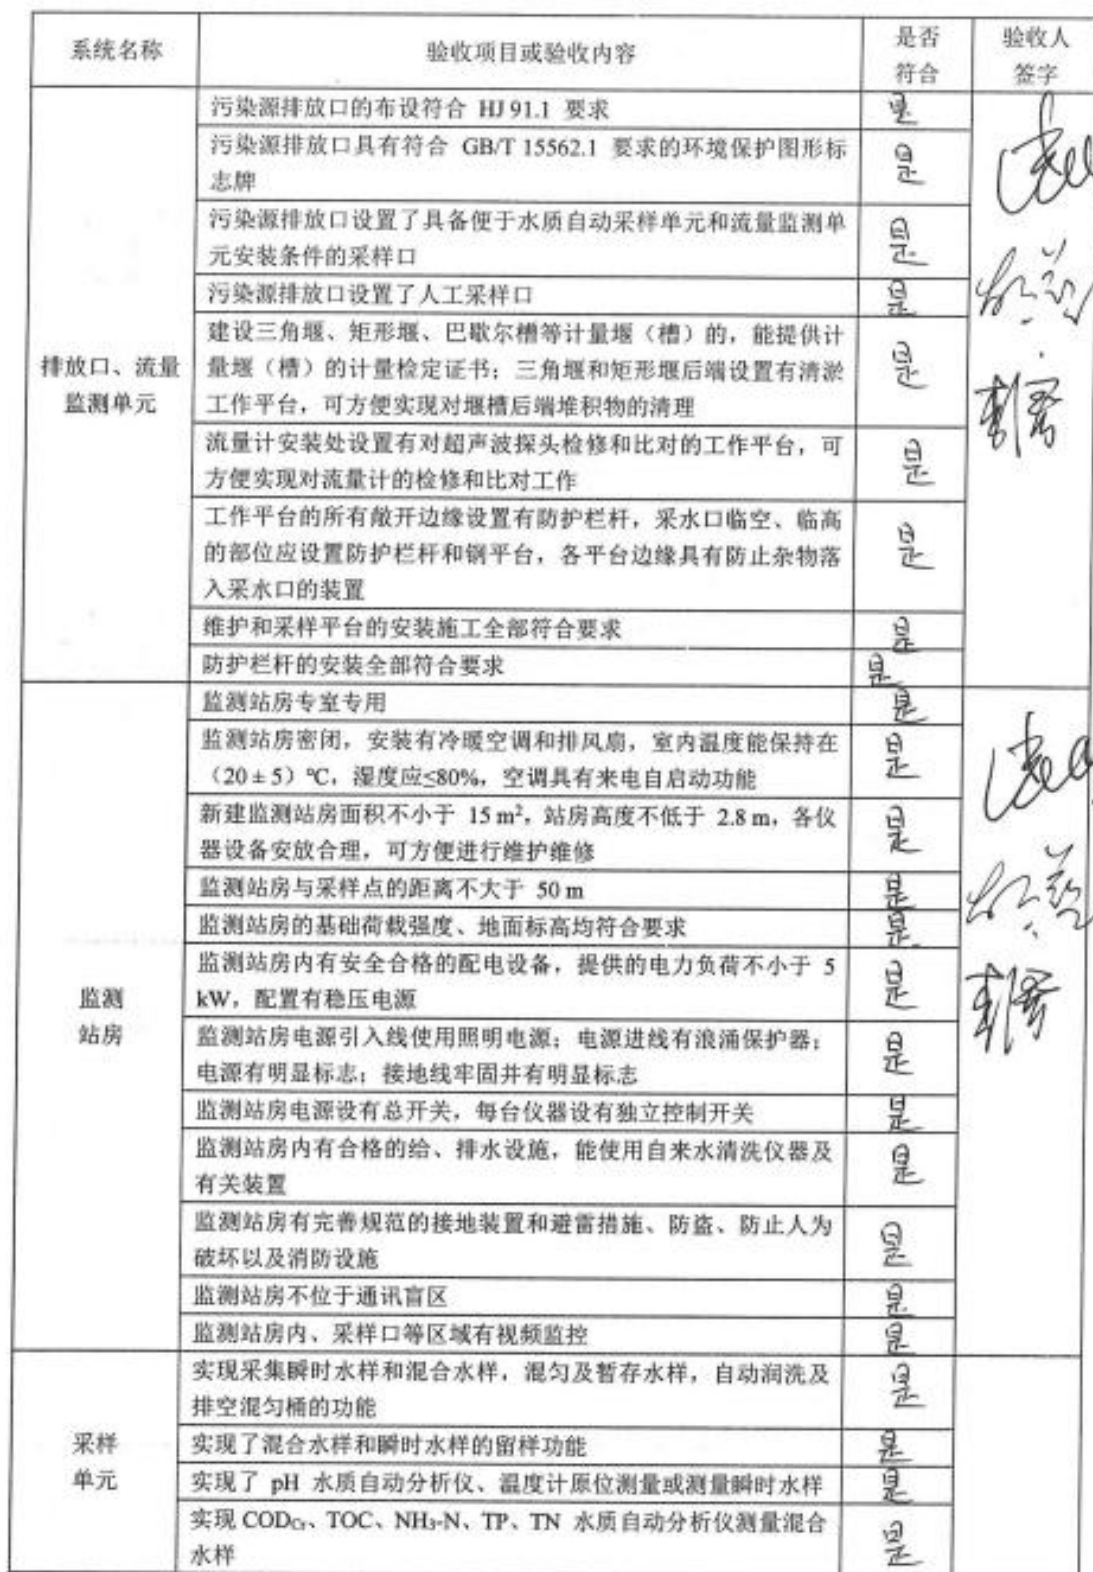 系统名称
验收项目或验收内容
是否
符合
验收人
签字
排放口、流量
监测单元
污染源排放口的布设符合 HJ 91.1 要求
是
污染源排放口具有符合 GB/T 15562.1 要求的环境保护图形标
志牌
是
污染源排放口设置了具备便于水质自动采样单元和流量监测单
元安装条件的采样口
是
污染源排放口设置了人工采样口
是
建设三角堰、矩形堰、巴歇尔槽等计量堰（槽）的，能提供计
量堰（槽）的计量检定证书；三角堰和矩形堰后端设置有清淤
工作平台，可方便实现对堰槽后端堆积物的清理
是
流量计安装处设置有对超声波探头检修和比对的工作平台，可
方便实现对流量计的检修和比对工作
是
工作平台的所有敞开边缘设置有防护栏杆，采水口临空、临高
的部位应设置防护栏杆和钢平台，各平台边缘具有防止杂物落
入采水口的装置
是
维护和采样平台的安装施工全部符合要求
是
防护栏杆的安装全部符合要求
是
监测
站房
监测站房专室专用
是
监测站房密闭，安装有冷暖空调和排风扇，室内温度能保持在
（20±5）℃，湿度应≤80%，空调具有来电自启动功能
是
新建监测站房面积不小于 15 m²，站房高度不低于 2.8 m，各仪
器设备安放合理，可方便进行维护维修
是
监测站房与采样点的距离不大于 50 m
是
监测站房的基础荷载强度、地面标高均符合要求
是
监测站房内有安全合格的配电设备，提供的电力负荷不小于 5
kW，配置有稳压电源
是
监测站房电源引入线使用照明电源；电源进线有浪涌保护器；
电源有明显标志；接地线牢固并有明显标志
是
监测站房电源设有总开关，每台仪器设有独立控制开关
是
监测站房内有合格的给、排水设施，能使用自来水清洗仪器及
有关装置
是
监测站房有完善规范的接地装置和避雷措施、防盗、防止人为
破坏以及消防设施
是
监测站房不位于通讯盲区
是
监测站房内、采样口等区域有视频监控
是
采样
单元
实现采集瞬时水样和混合水样，混匀及暂存水样，自动润洗及
排空混匀桶的功能
是
实现了混合水样和瞬时水样的留样功能
是
实现了 pH 水质自动分析仪、温度计原位测量或测量瞬时水样
是
实现 CODCr、TOC、NH₃-N、TP、TN 水质自动分析仪测量混合
水样
是